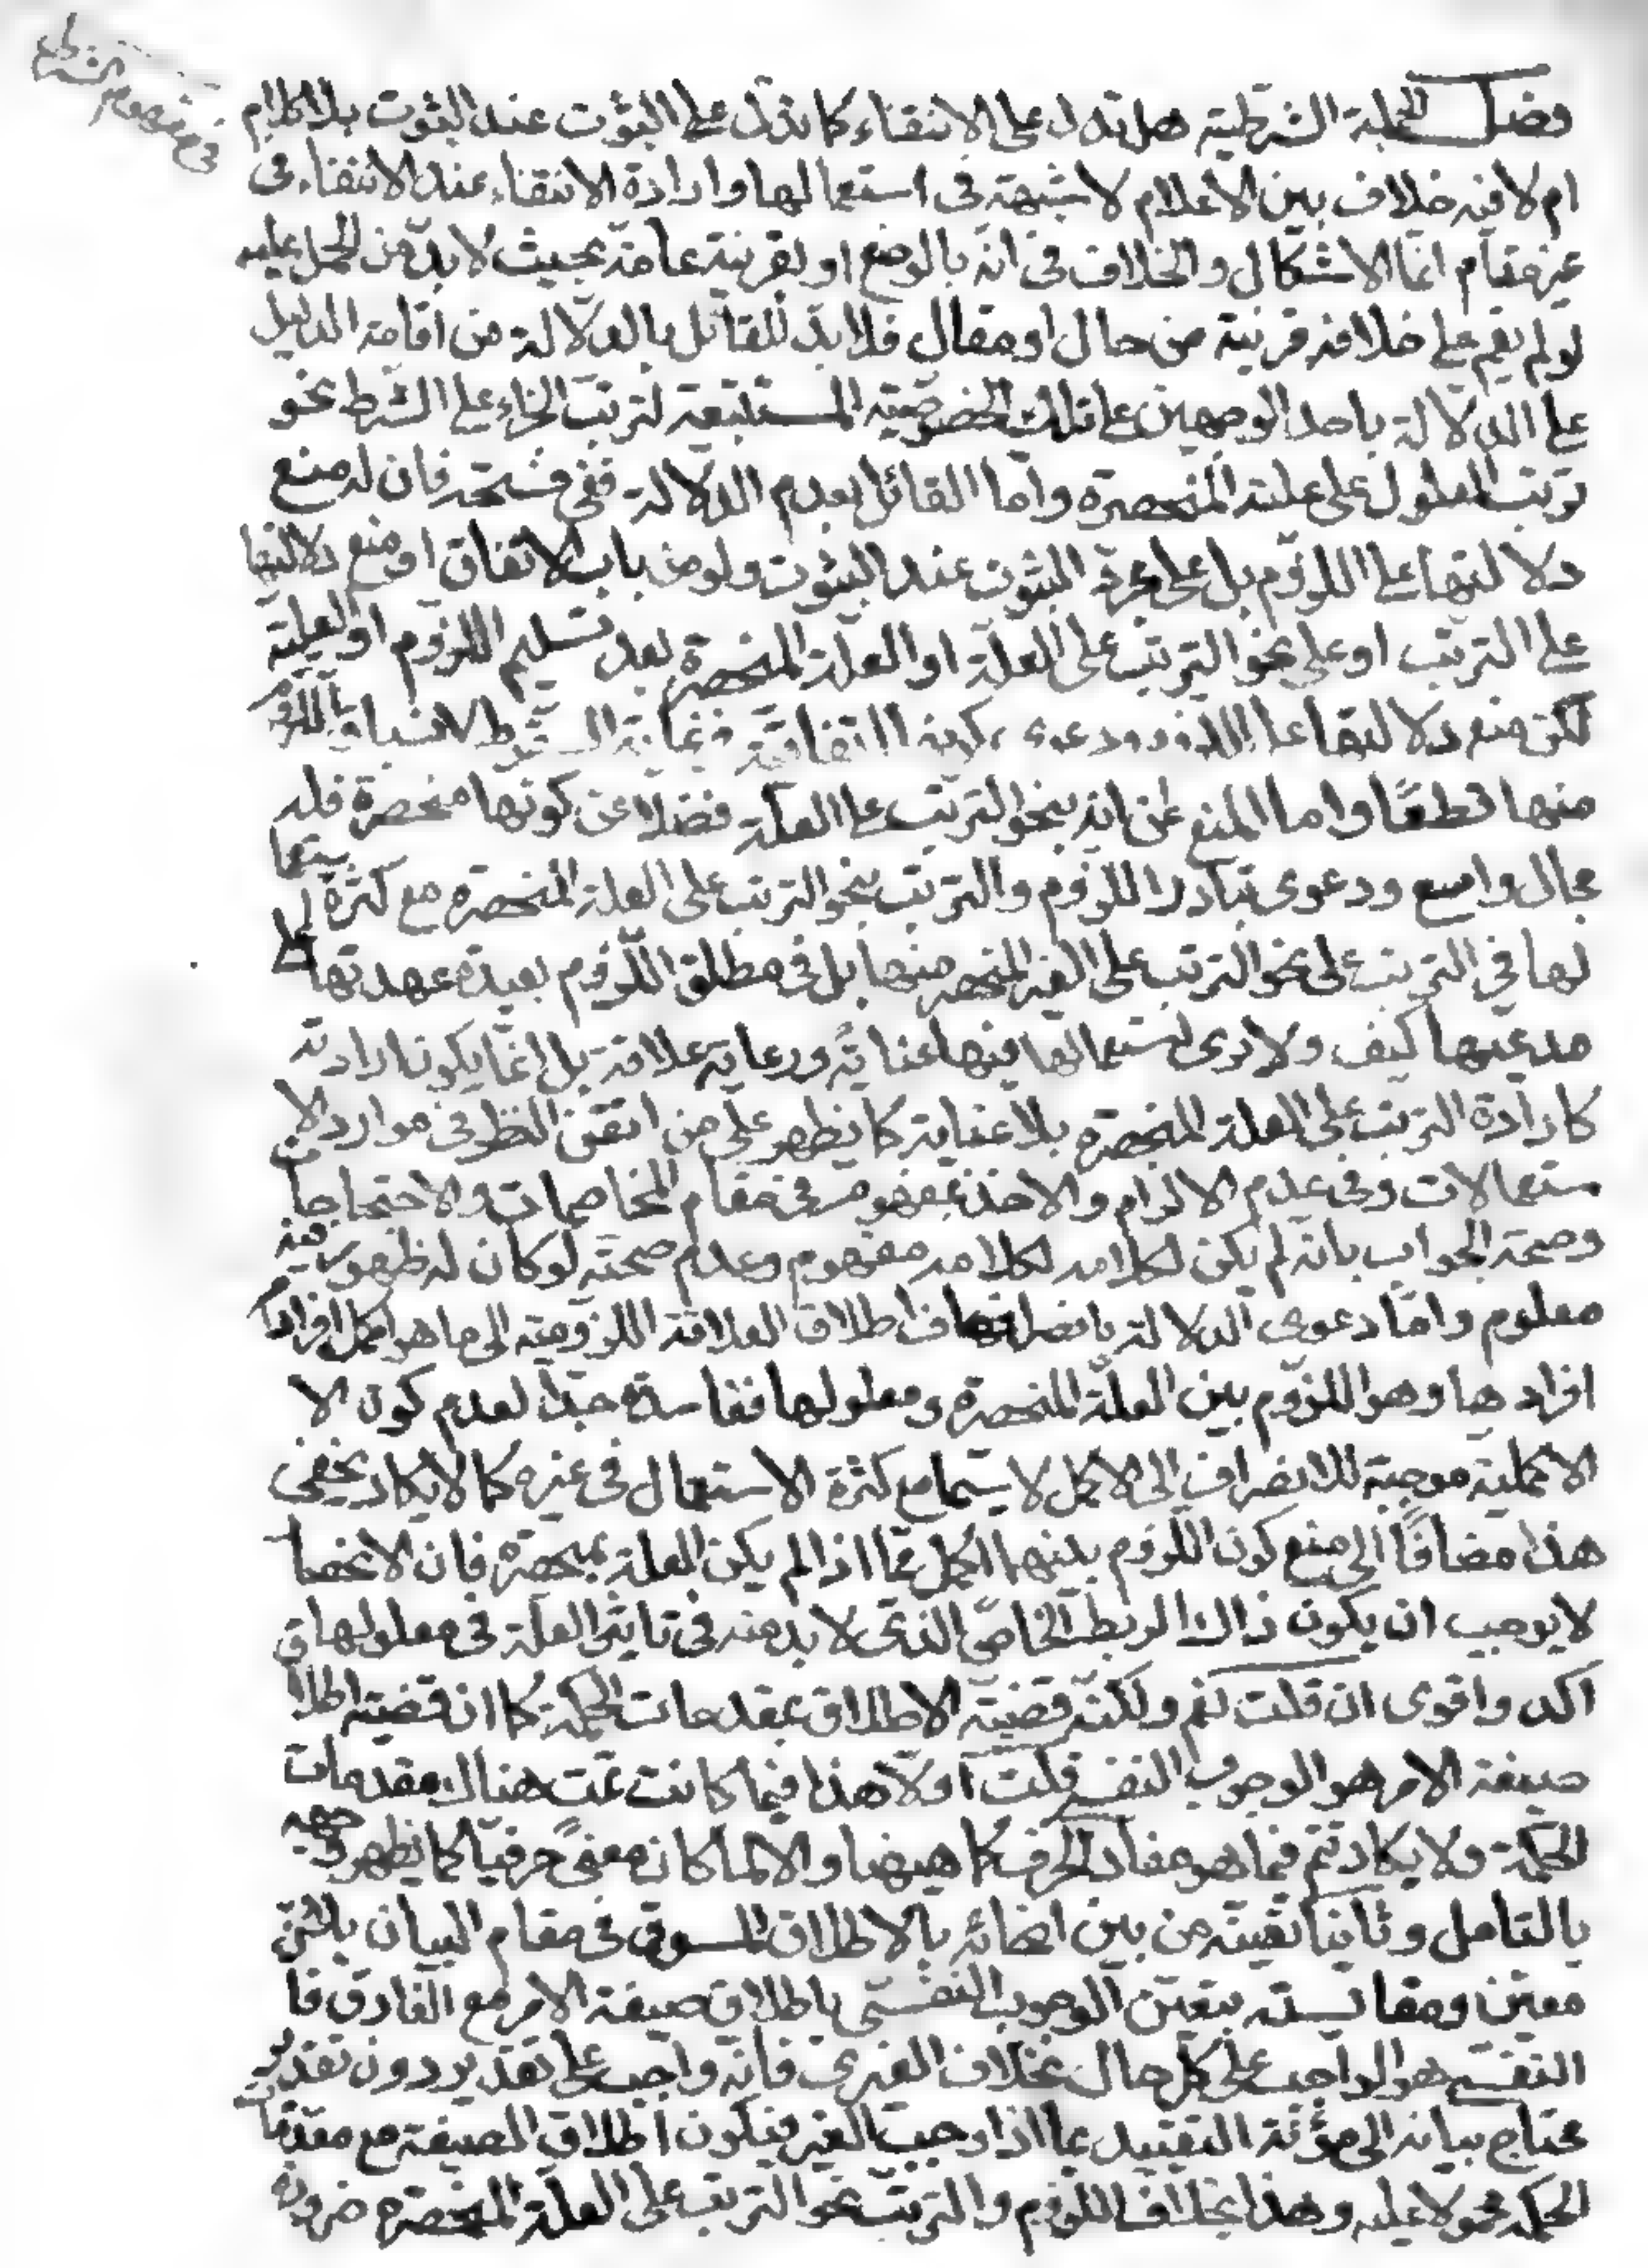 في مفهوم الشرط
فصل الجملة الشرطية هل تدل على الانتفاء كما تدل على الثبوت عند الثبوت بلا كلام
ام لا فيه خلاف بين الاعلام لا شبهة في استعمالها وارادة الانتفاء عند الانتفاء في
غير مقام انما الاشكال والخلاف في انه بالوضع او بقرينة عامة بحيث لا بد من الحمل عليه
لو لم يقم على خلافه قرينة من حال او مقال فلا بد للقائل بالدلالة من اقامة الدليل
على الدلالة باحد الوجهين على تلك الخصوصية المستتبعة لترتب الجزاء على الشرط نحو
ترتب المعلول على علته المنحصرة واما القائل بعدم الدلالة ففي فسحة فان له منع
دلالتها على اللزوم بل على مجرد الثبوت عند الثبوت ولو من باب الاتفاق او منع دلالتها
على الترتب او على نحو الترتب على العلة او العلة المنحصرة بعد تسليم اللزوم او العلية
لكن منع دلالتها على اللزوم ودعوى كونها اتفاقية في غاية السقوط لانسباق اللزوم
منها قطعا واما المنع عن انه بنحو الترتب على العلة فضلا عن كونها منحصرة فله
مجال واسع ودعوى تبادر اللزوم والترتب بنحو الترتب على العلة المنحصرة مع كثرة استعمالها
لها في الترتب على نحو الترتب على الغير المنحصر منها بل في مطلق اللزوم بعيدة عهدتها على
مدعيها كيف ولا يرى استعمالها فيها عناية ورعاية علاقة بل انما يكون ارادته
كارادة الترتب على العلة المنحصرة بلا عناية كما يظهر على من اتقن النظر في موارد الا
ستعمالات وفي عدم الالزام والاخذ بمفهوم في مقام المخاصمات والاحتجاجات
وصحة الجواب بانه لم يكن لكلامه لكلامه مفهوم وعدم صحته لو كان له ظهور فيه
معلوم واما دعوى الدلالة بانصراف اطلاق العلاقة اللزومية الى ما هو اكمل افرادها
افرادها وهو اللزوم بين العلة المنحصرة ومعلولها ففاسدة جدا لعدم كون الا
الاكملية موجبة للانصراف الى الاكمل لا سيما مع كثرة الاستعمال في غيره كما لا يكاد يخفى
هذا مضافا الى منع كون اللزوم بينهما اكمل مما اذا لم يكن العلة بمنحصرة فان الانحصا
لا يوجب ان يكون ذاك الربط الخاص الذي لا بد منه في تاثير العلة في معلولها
اكد واقوى ان قلت نعم ولكنه قضية الاطلاق بمقدمات الحكمة كما ان قضية اطلا
صيغة الامر هو الوجوب النفسي قلت اولا هذا فيما كانت تمت هناك مقدمات
الحكمة ولا يكاد تتم فيما هو مفاد الحرف كما هيهنا والا لما كان معنى حرفيا كما يظهر وجهه
بالتامل وثانيا تعينه من بين انحائه بالاطلاق المسوق في مقام البيان بلا
معين ومقايسته بتعين الوجوب النفسي باطلاق صيغة الامر مع الفارق فا
النفسي هو الواجب على كل حال بخلاف الغيري فانه واجب على تقدير دون تقدير
محتاج بيانه الى مؤنة التقييد بما اذا وجب الغير فيكون اطلاق الصيغة مع مقدمات
الحكمة محمولا عليه وهذا بخلاف اللزوم والترتب بنحو الترتب على العلة المنحصرة ضرورة